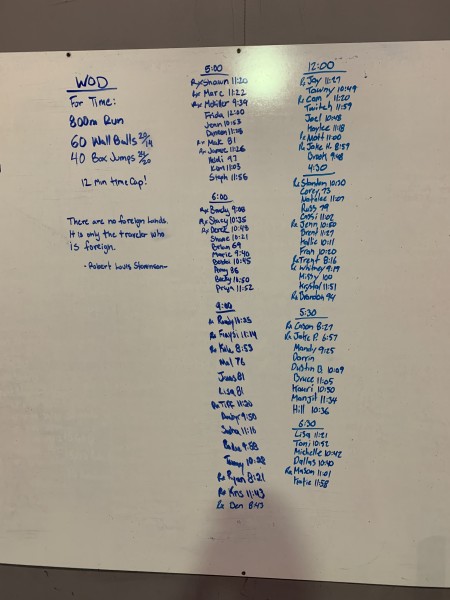 WOD
For Time:
800m Run
60 Wall Balls 20/14
40 Box Jumps 24/20
12 Min Time Cap!
There are no foreign lands.
It is only the traveler who
is foreign.
- Robert Louis Stevenson -
5:00
Rx Shawn 11:20
Rx Marc 11:22
Rx McKiller 9:39
Frida 12:00
Jenn 10:53
11:08
Rx Mak 81
Rx James 11:26
Heidi 97
Kam 11:03
Steph 11:56
6:00
Rx Brady 9:08
Rx Stacy 10:35
Rx Derek 10:48
Shane 10:21
Brian 69
Marie 9:40
Bobbi 10:45
Penny 86
Becky 11:50
Priya 11:52
9:00
Rx Randy 11:25
Rx 11:14
Rx Kyle 8:53
Mel 76
Jonas 81
Lisa 81
Rx Tiff 11:20
Andy 9:50
11:18
9:58
Tammy 10:28
Rx Ryan 8:21
Rx Kris 11:43
Rx Dan 8:43
12:00
Rx Jay 11:27
Tawny 10:49
Rx Cam 11:20
Twitch 11:59
Joel 10:48
Haylee 11:18
Rx Matt 11:00
Rx Jake H. 8:59
9:48
4:30
Rx 10:30
Corey 73
Natalie 11:07
Russ 79
Cassi 11:02
Rx Jenn 10:50
Brent 11:27
Hallie 10:11
Fran 10:20
Rx Trent 8:16
Rx Whitney 9:19
Missy 100
Krystal 11:51
Rx Brandon 94
5:30
Rx Cason 8:27
Rx Jake P. 6:57
Mandy 9:25
Darrin
Dustin B 10:09
Bruce 11:05
Kauri 10:50
Manjit 11:34
Hill 10:36
6:30
Lisa 11:21
Toni 10:52
Michelle 10:42
Dallas 10:40
Rx Mason 11:01
Katie 11:58